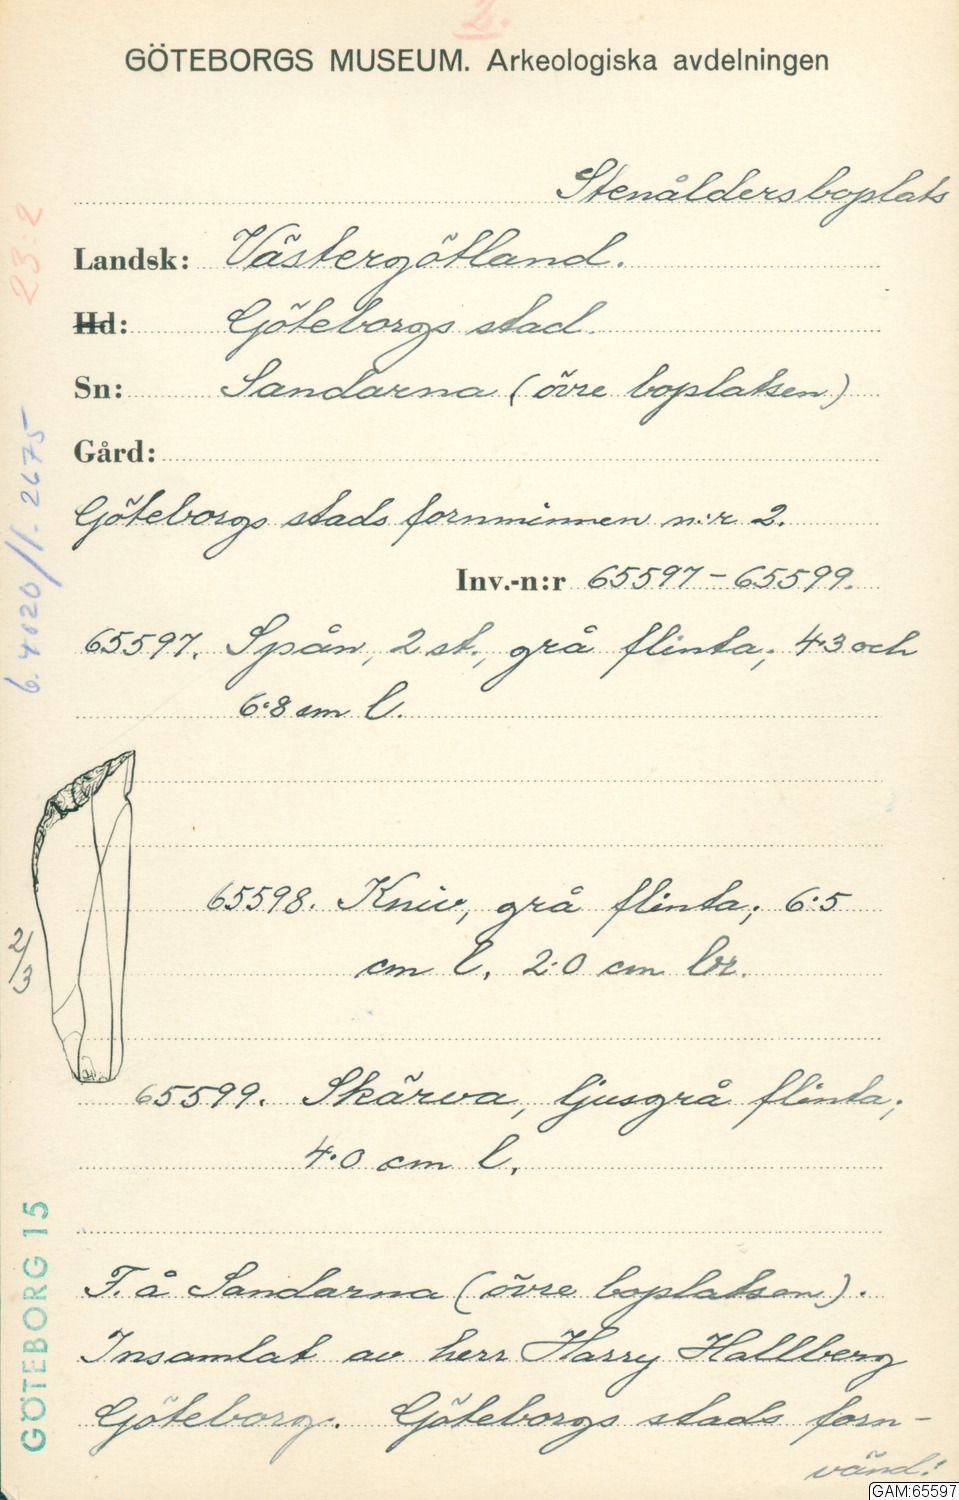 2.
GÖTEBORGS MUSEUM. Arkeologiska avdelningen
Stenåldersboplats
Landsk: Västergötland.
Hd: Göteborgs stad.
Sn: Sandarna (övre boplatsen)
Gård:
Göteborgs stads fornminnen n:r 2.
Inv.-n:r 65597-65599.
65597. Spån, 2 st., grå flinta; 4.3 och
6.8 cm l.
65598. Kniv, grå flinta; 6.5
cm l, 2.0 cm br.
2/3
65599. Skärva, ljusgrå flinta;
4.0 cm l.
F. å Sandarna (övre boplatsen).
Insamlat av herr Harry Hallberg
Göteborg. Göteborgs stads forn-
vänd!
23:2
GÖTEBORG 15
GAM:65597